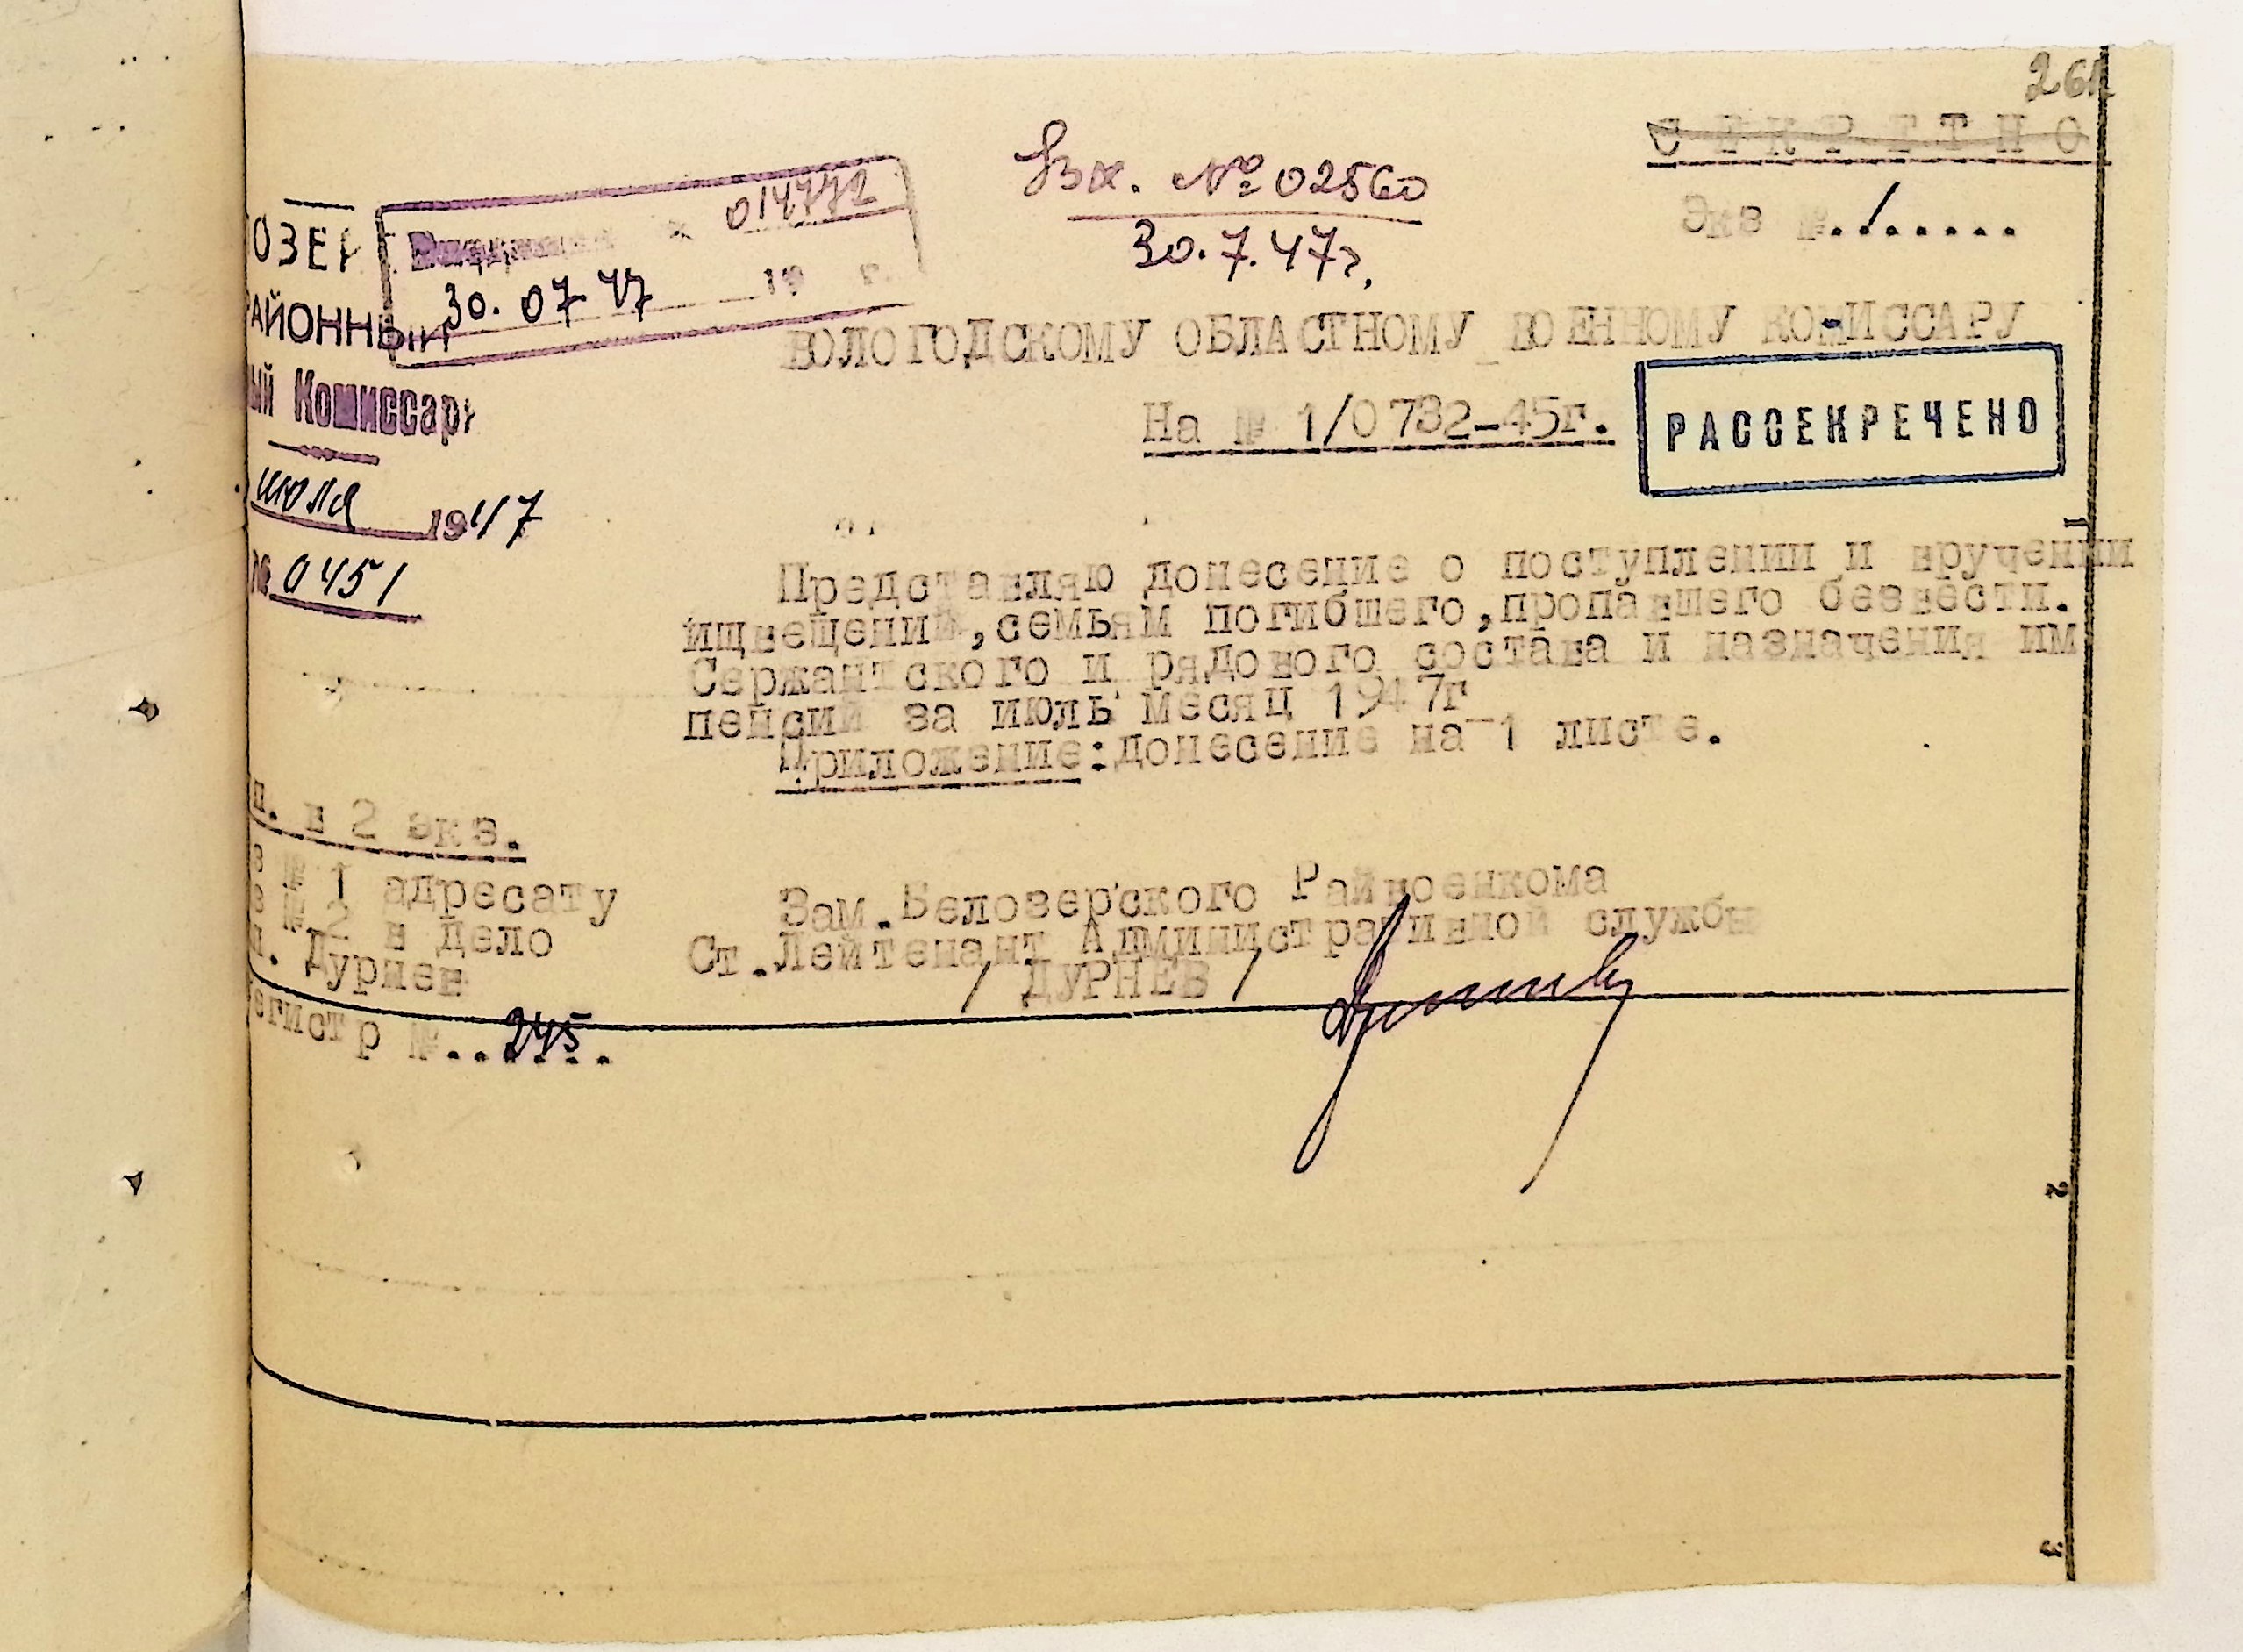 261
СЕКРЕТНО
Экз №./......
Вх. № 02560
30.7.47г.
014772
30. 07 47 19 г.
ОЗЕР
АЙОННЫЙ
ый Комиссари
июля 1947
№ 0451
ВОЛОГОДСКОМУ ОБЛАСТНОМУ ВОЕННОМУ КОМИССАРУ
На № 1/0732-45г.
РАССЕКРЕЧЕНО
Представляю донесение о поступлении и вручении
ищвещений,семьям погибшего,пропавшего безвести.
Сержантского и рядового состава и назначения им
пенсий за июль месяц 1947г
Приложение:донесение на 1 листе.
п. в 2 экз.
з № 1 адресату
з № 2 в дело
п. Дурнев
егистр №..245..
Зам.Белозерского Райвоенкома
Ст.Лейтенант Административной службы
/ ДУРНЕВ /
2
3